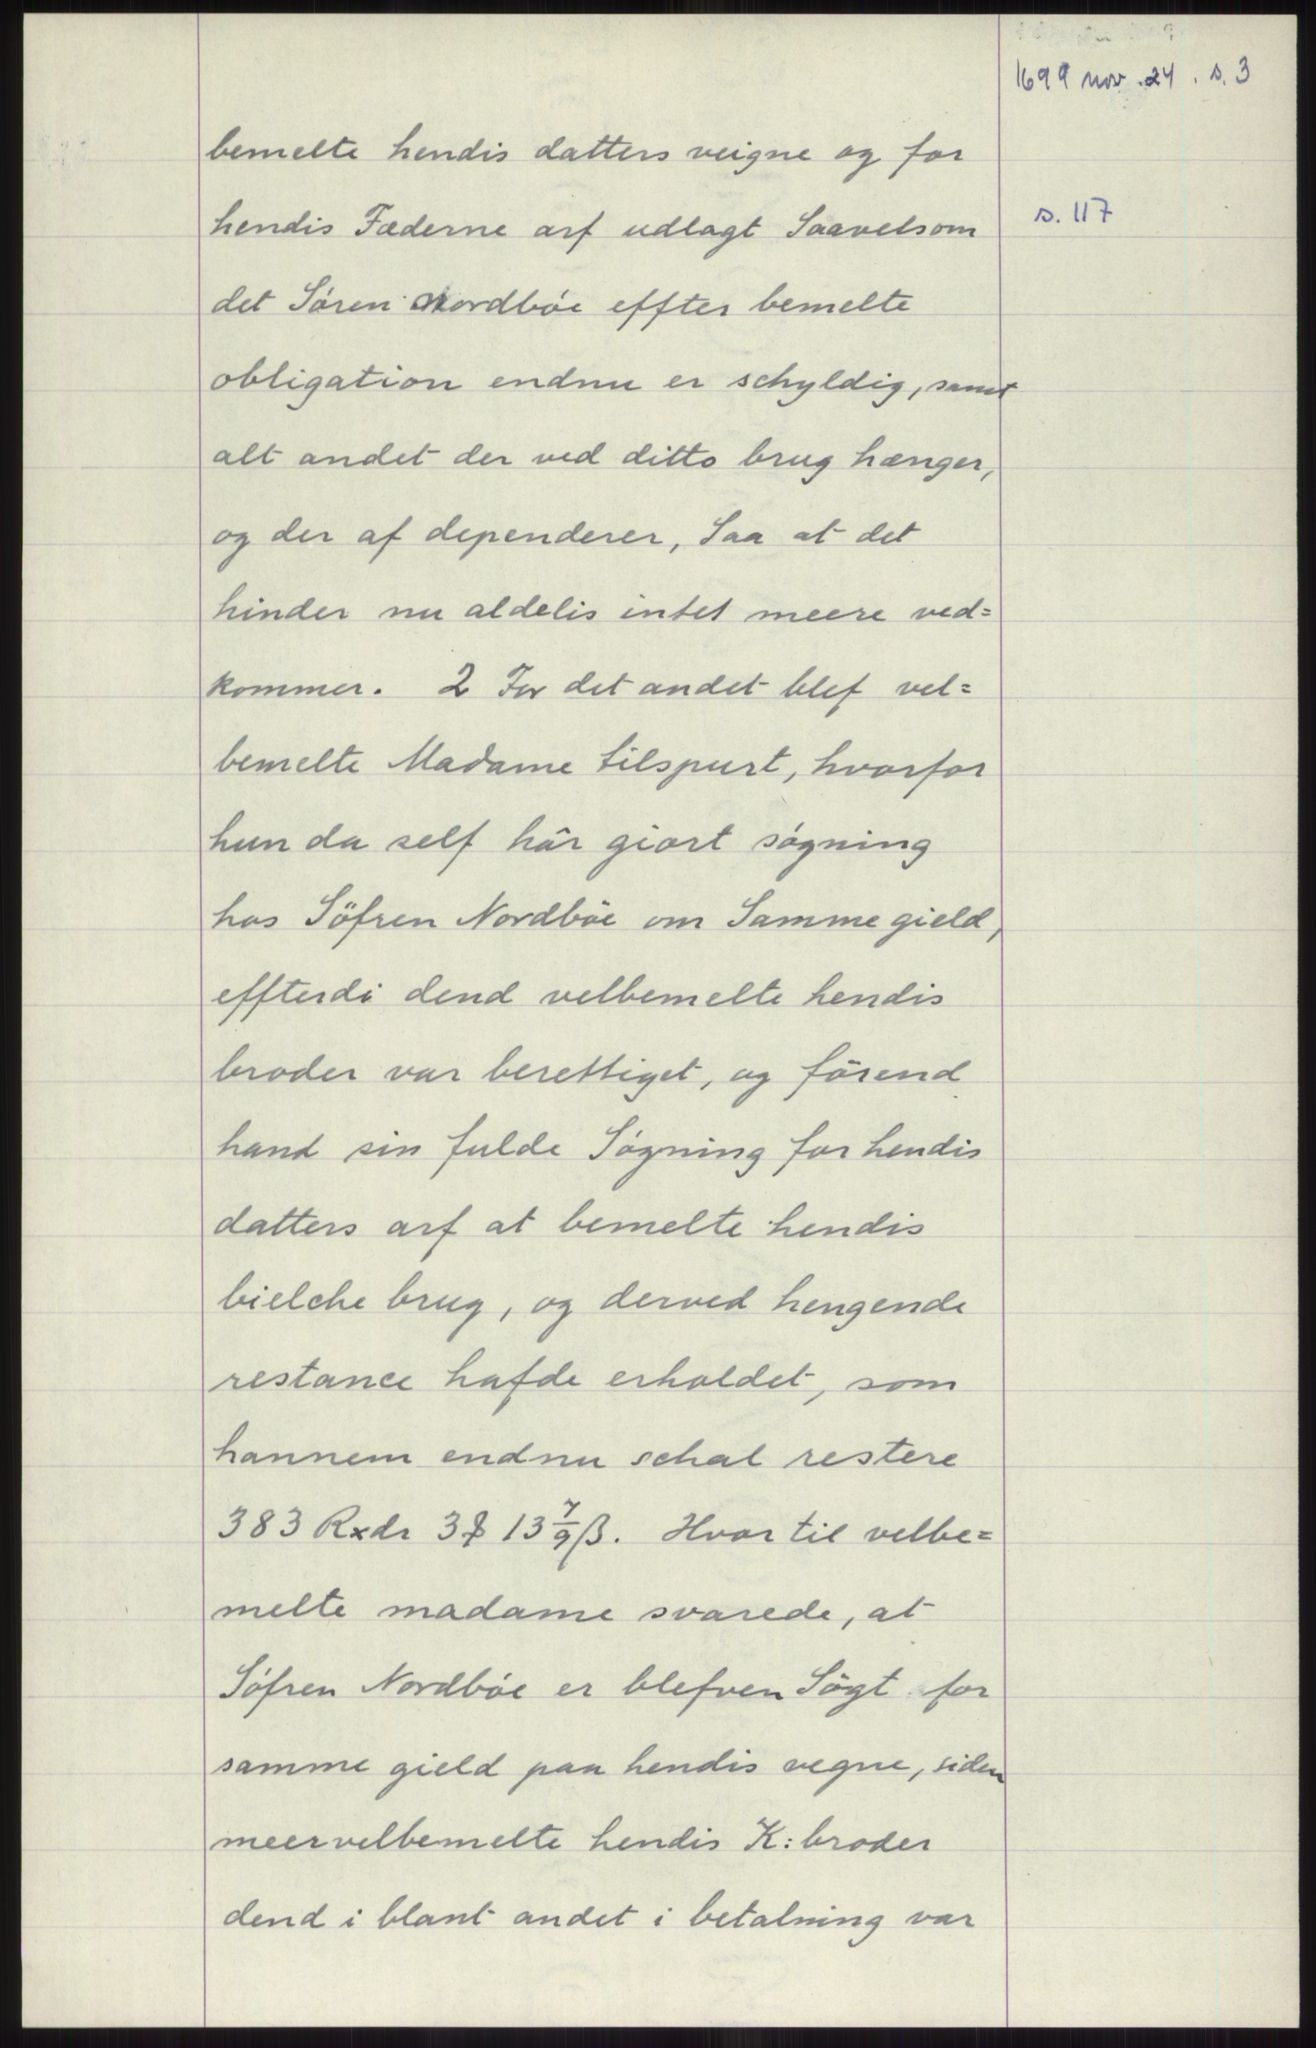 1699 nov. 24. s. 3
bemelte hendis datters veigne og for
hendis Fæderne arf udlagt Saavelsom
s. 117
det Sören Nordböe effter bemelte
obligation endnu er schyldig, samt
alt andet der ved ditto brug hænger,
og der af dependerer, Saa at det
hinder nu aldelis intet meere ved=
kommer. 2 For det andet blef vel=
bemelte Madame tilspurt, hvorfor
hun da self här giort sögning
hos Söfren Nordböe om Samme gield,
effterdi dend velbemelte hendis
broder var berettiget, og förend
hand sin fulde Sögning for hendis
datters arf at bemelte hendis
bielche brug, og derved hengende
restance hafde erholdet, som
hannem endnu schal restere
383 Rxdr 3 13 7/9 ß. Hvor til velbe=
melte madame svarede, at
Söfren Nordböe er blefven Sögt for
samme gield paa hendis vegne, siden
meervelbemelte hendis K: broder
dend i blant andet i betalning var